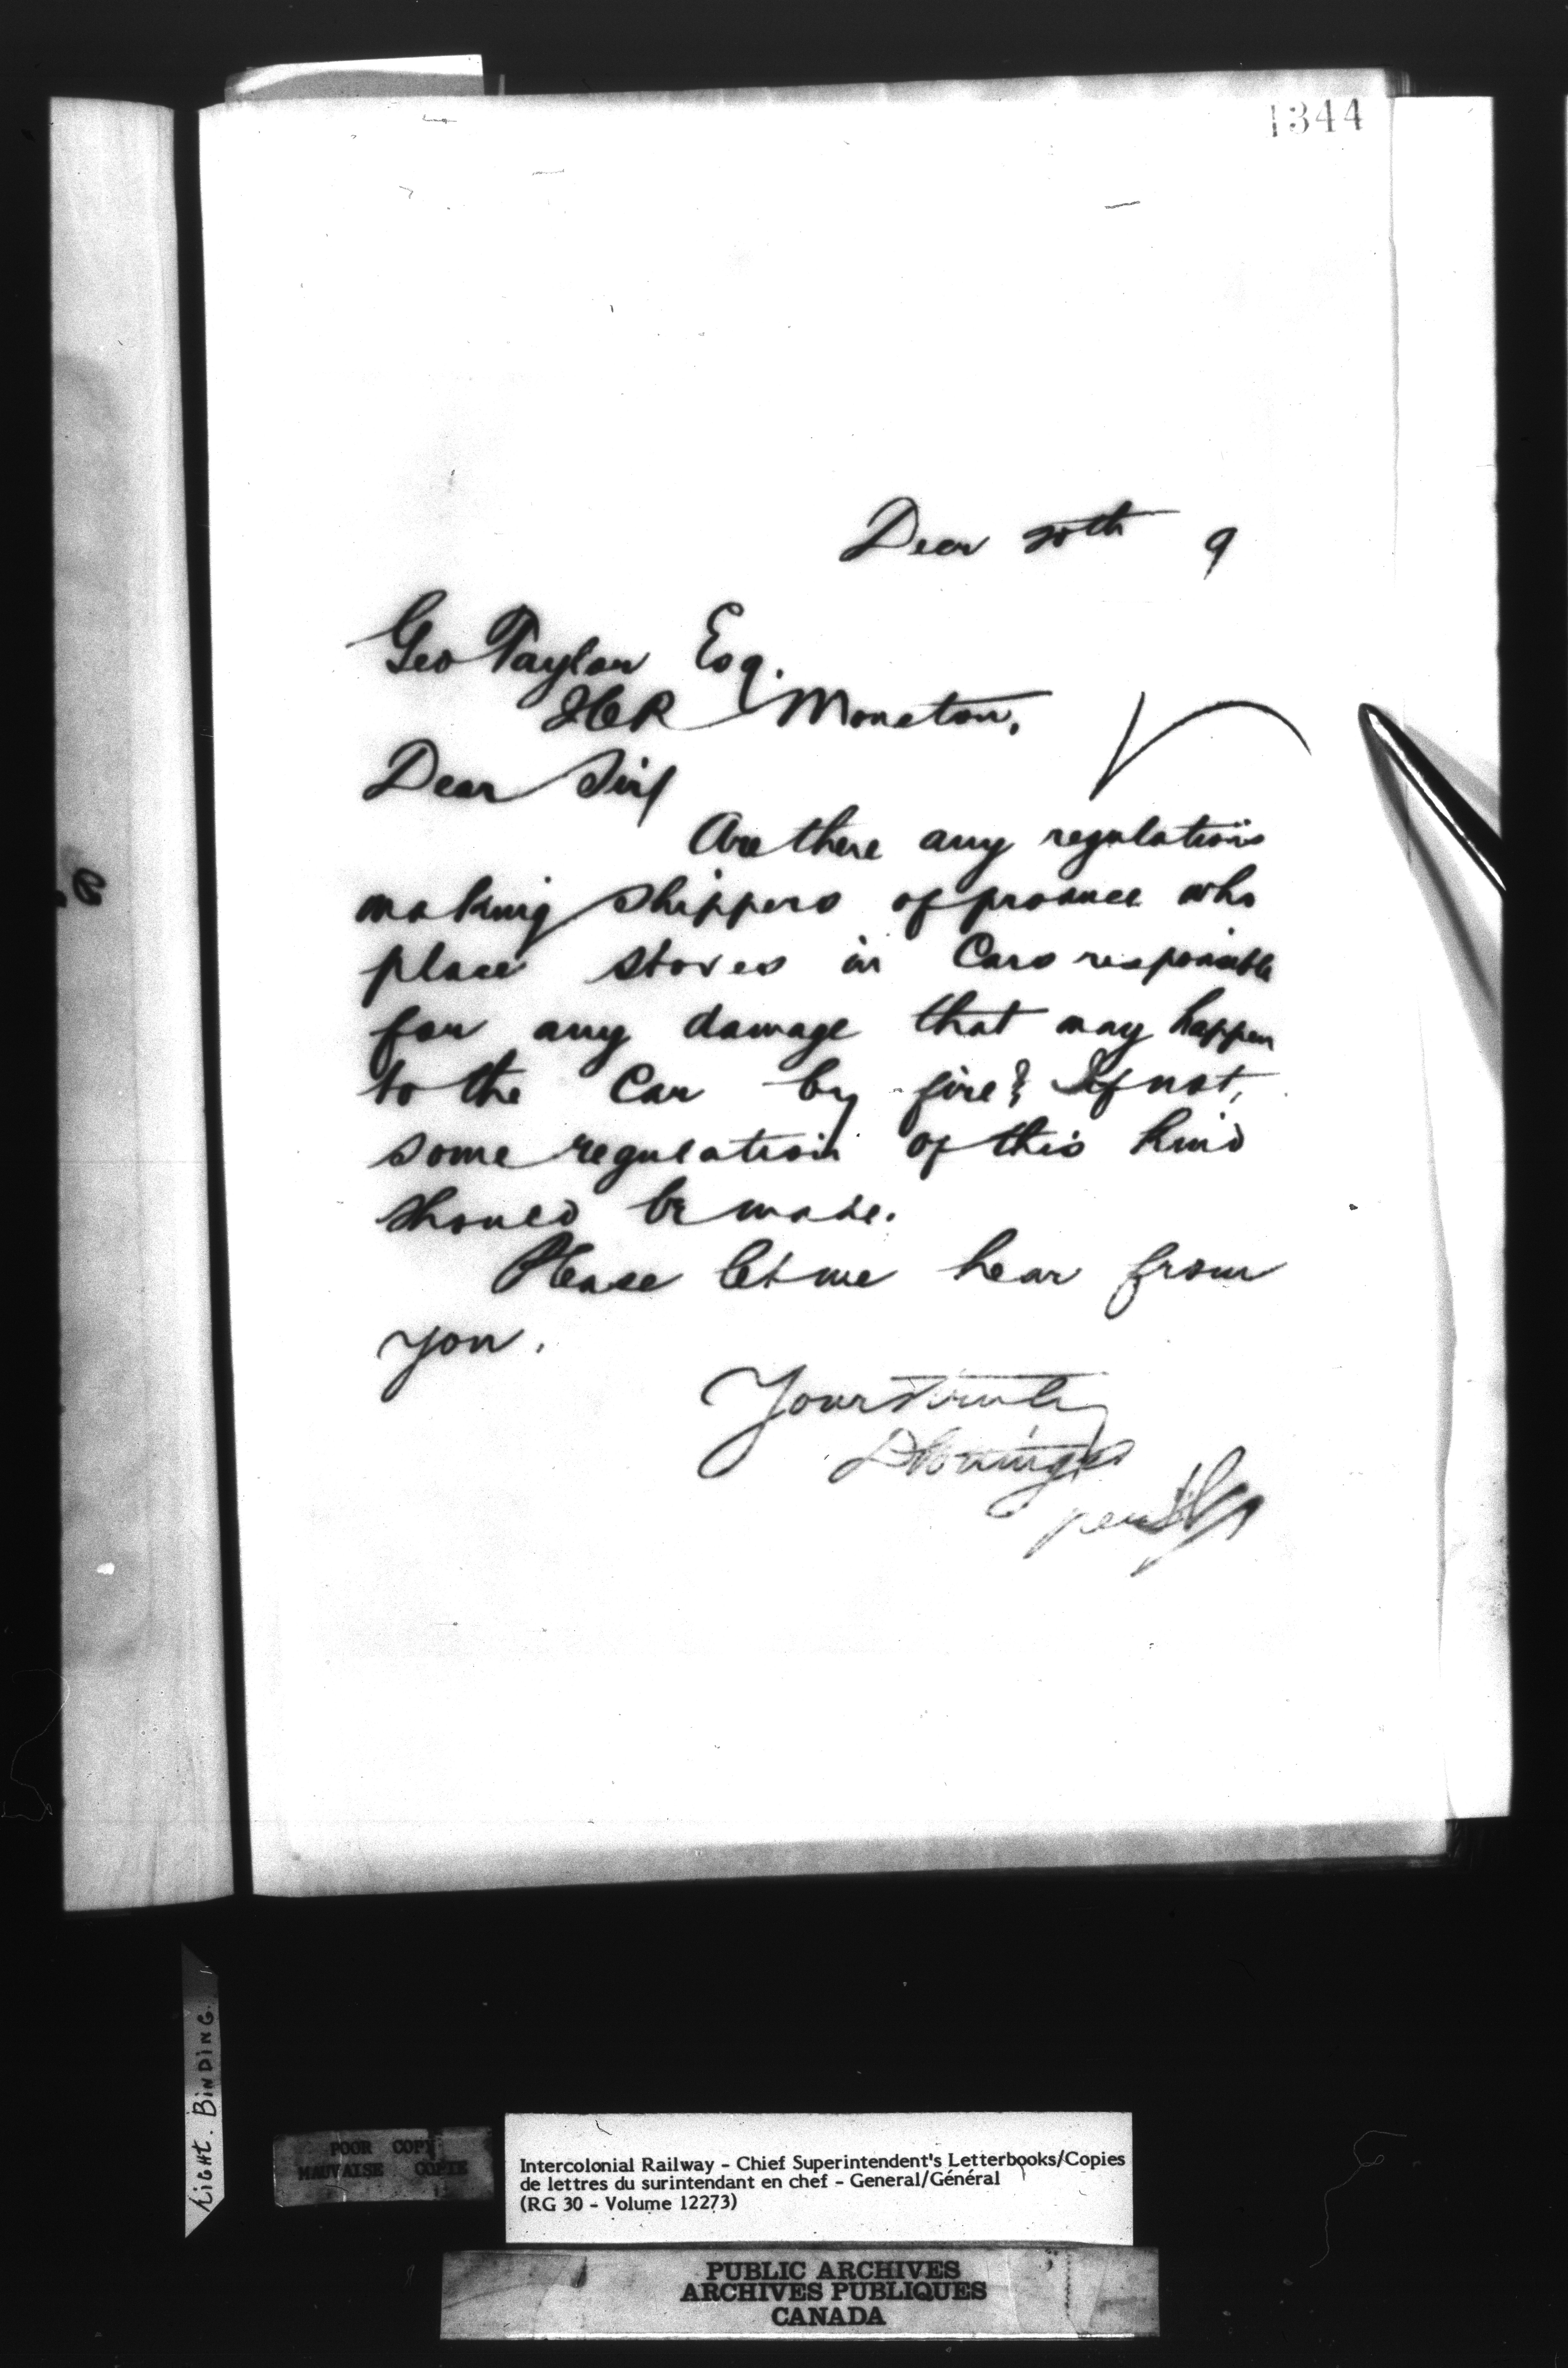 1344
Decr 20th 9
Geo Taylor Esq.
ICR Moncton.
Dear Sir/
Are there any regulations
making shippers of produce who
place stoves in Cars responsible
for any damage that may happen
to the Car by fire? If not,
some regulation of this kind
should be made.
Please let me hear from
you.
Yours truly
D Pottinger
per
TIGHT. BINDING.
POOR COPY
MAUVAISE COPIE
Intercolonial Railway - Chief Superintendent's Letterbooks/Copies
de lettres du surintendant en chef - General/Général
(RG 30 - Volume 12273)
PUBLIC ARCHIVES
ARCHIVES PUBLIQUES
CANADA